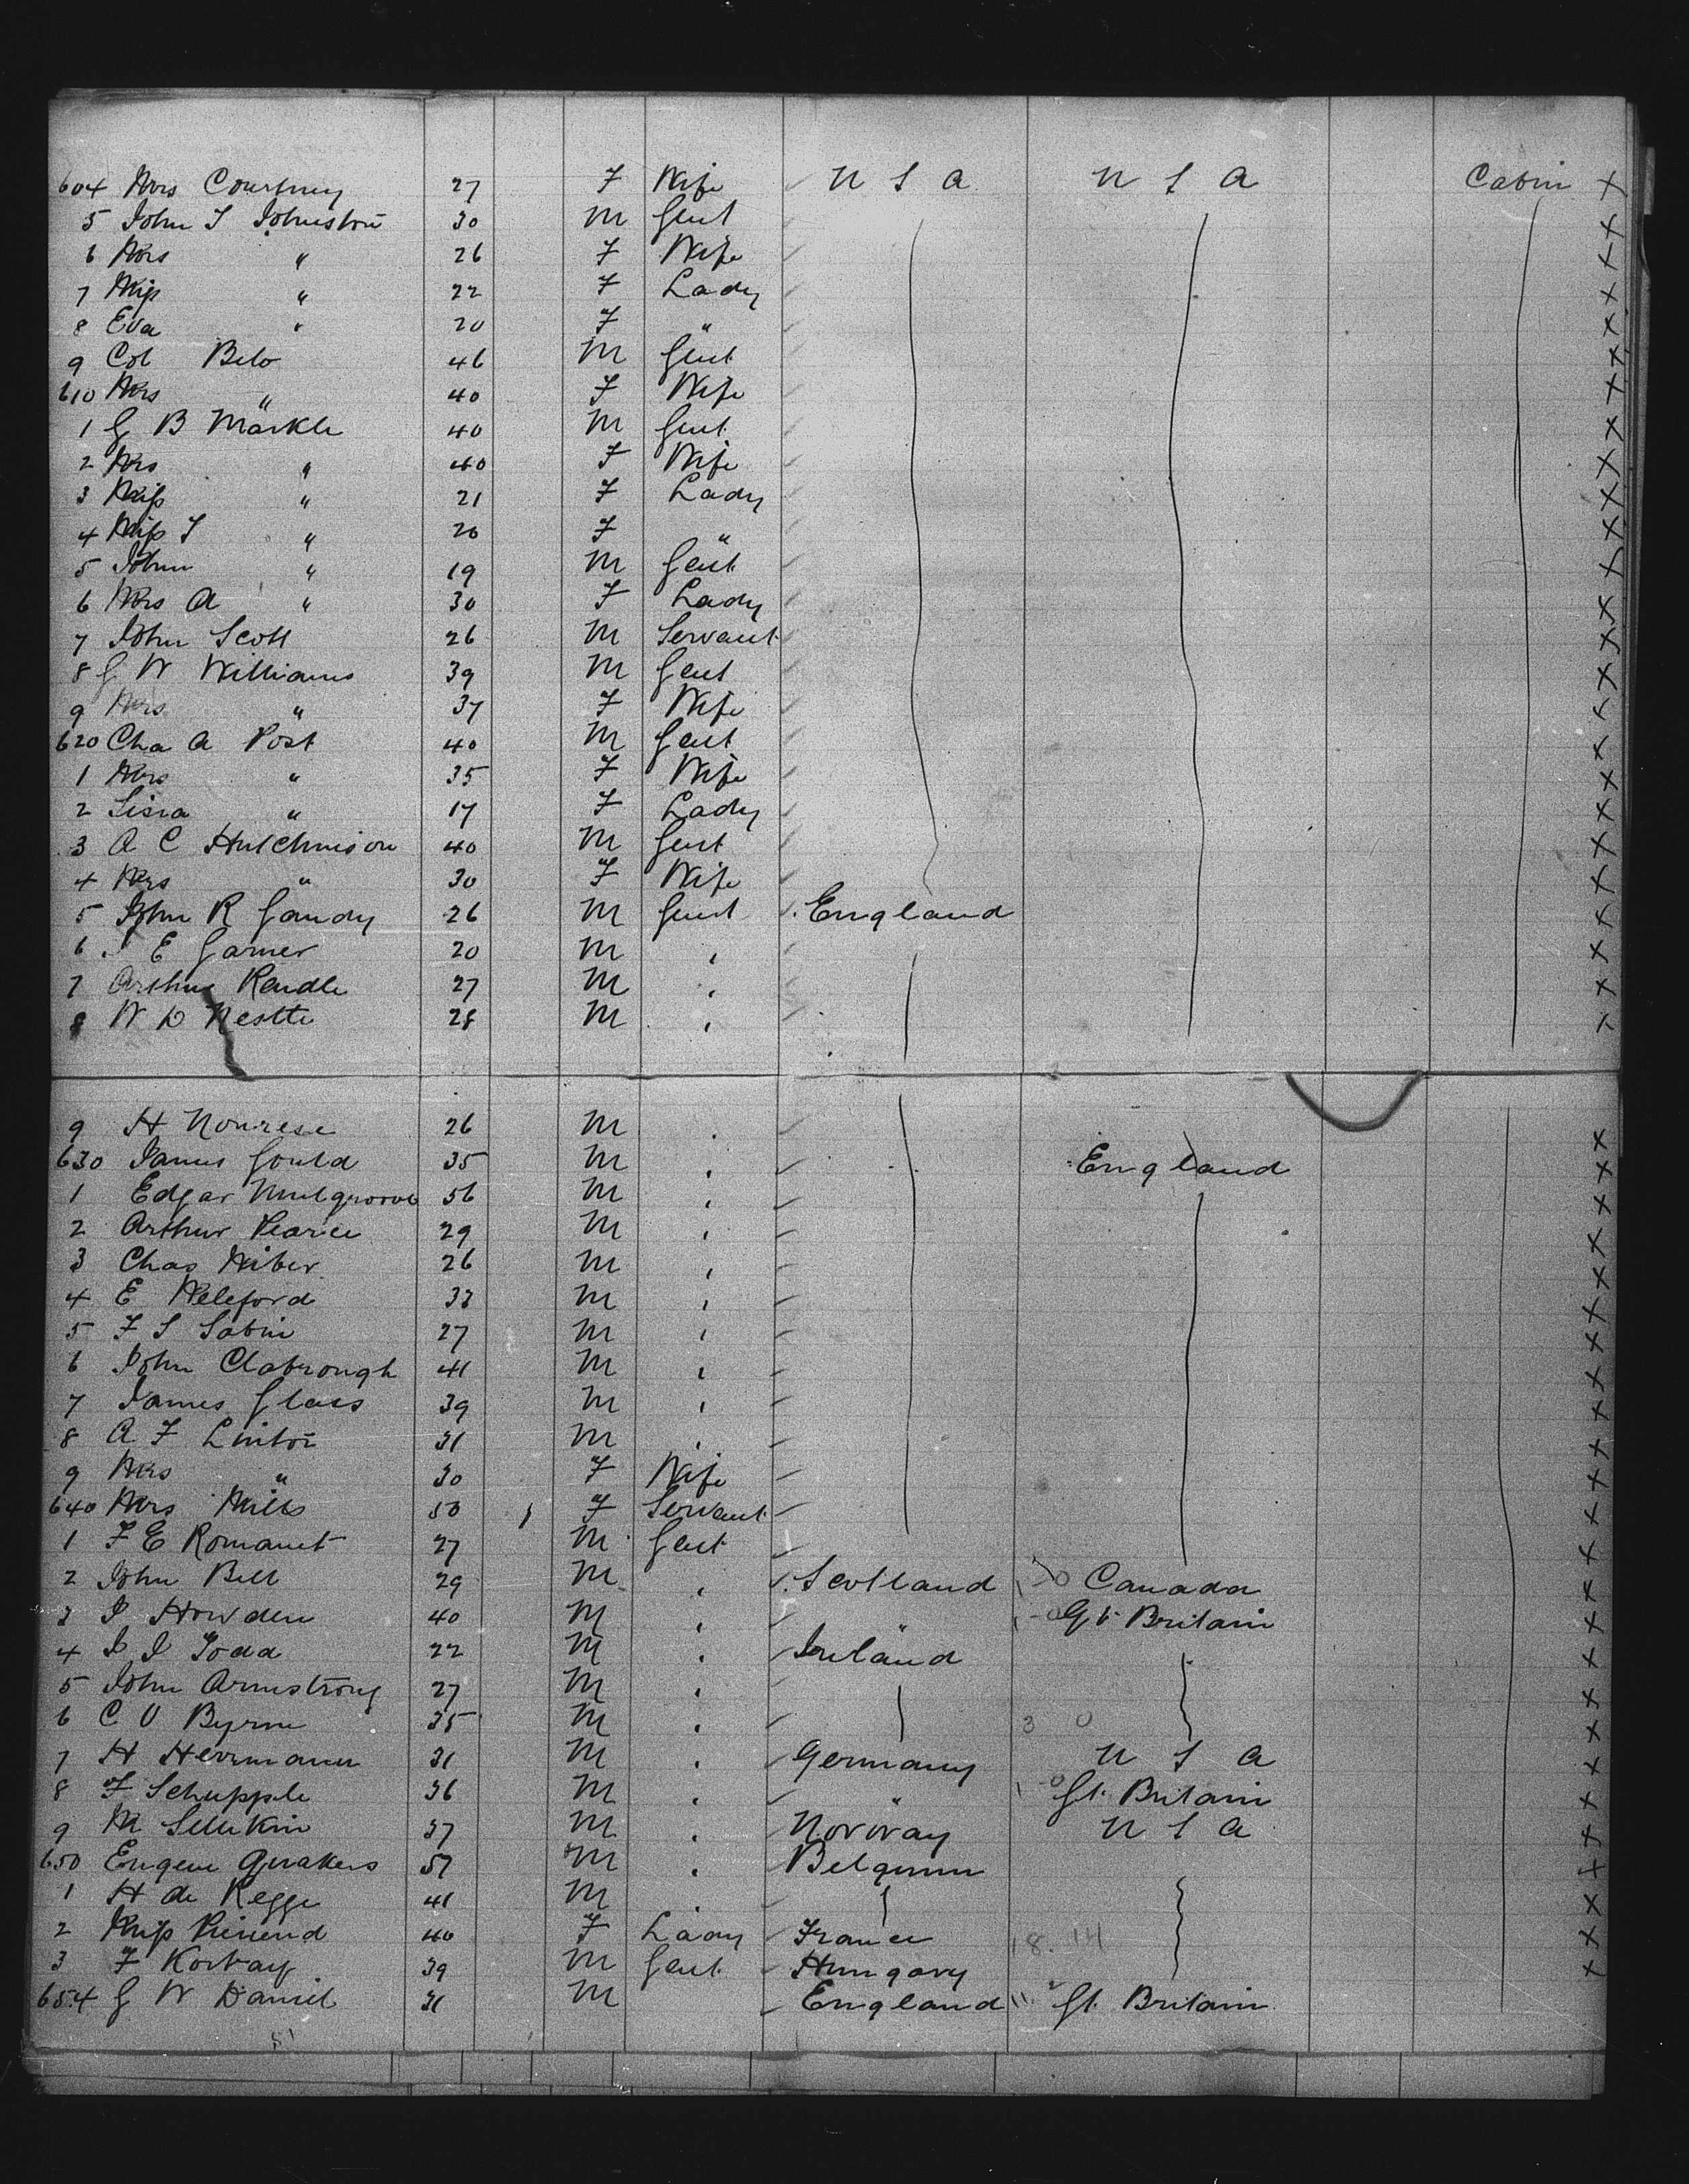 604 Mrs Courtney 27 F Wife U S A U S A Cabin X
5 John S Johnston 30 M Gent X
6 Mrs " 26 F Wife X
7 Miss " 22 F Lady X
8 Eva " 20 F " X
9 Col Belo 46 M Gent X
610 Mrs " 40 F Wife X
1 G B Markle 40 M Gent X
2 Mrs " 40 F Wife X
3 Miss " 21 F Lady X
4 Miss I " 20 F " X
5 John " 19 M Gent X
6 Mrs A " 30 F Lady X
7 John Scott 26 M Servant X
8 G W Williams 39 M Gent X
9 Mrs " 37 F Wife X
620 Cha A Post 40 M Gent X
1 Mrs " 35 F Wife X
2 " 17 F Lady X
3 A C Hutchinson 40 M Gent X
4 Mrs " 30 F Wife X
5 John R Gandy 26 M Gent England X
6 E Garner 20 M " X
7 Arthur Rendle 27 M " X
8 W D 28 M " X
9 H Nourese 26 M " X
630 James Gould 35 M " England X
1 Edgar 56 M " X
2 Arthur Pearce 29 M " X
3 Chas 26 M " X
4 E 33 M " X
5 F S Sabin 27 M " X
6 John Clabrough 41 M " X
7 James Glass 39 M " X
8 A F Linton 31 M " X
9 Mrs " 30 F Wife X
640 Mrs Mills 50 F Servant X
1 F E Romanet 27 M Gent X
2 John Bell 29 M " Scotland Canada X
3 J Howden 40 M " " Gt Britain X
4 J J Todd 22 M " Ireland X
5 John Armstrong 27 M " X
6 C O Byrne 35 M " 3 0 X
7 H Herrmann 31 M " Germany U S A X
8 F Schupple 36 M " " Gt. Britain X
9 M 37 M " Norway U S A X
650 Eugene 57 M " Belgium X
1 H de Regge 41 M " X
2 Miss 40 F Lady France X
3 F Korbay 39 M Gent Hungary X
654 G W Daniel 31 M England Gt. Britain